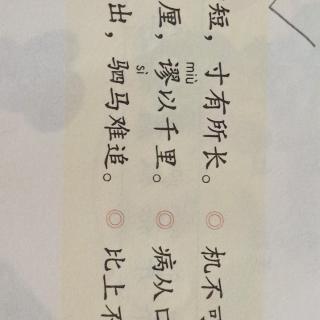 短，寸有所长。◎机不可
miù
厘，谬以千里。◎病从口
sì
出，驷马难追。◎比上不